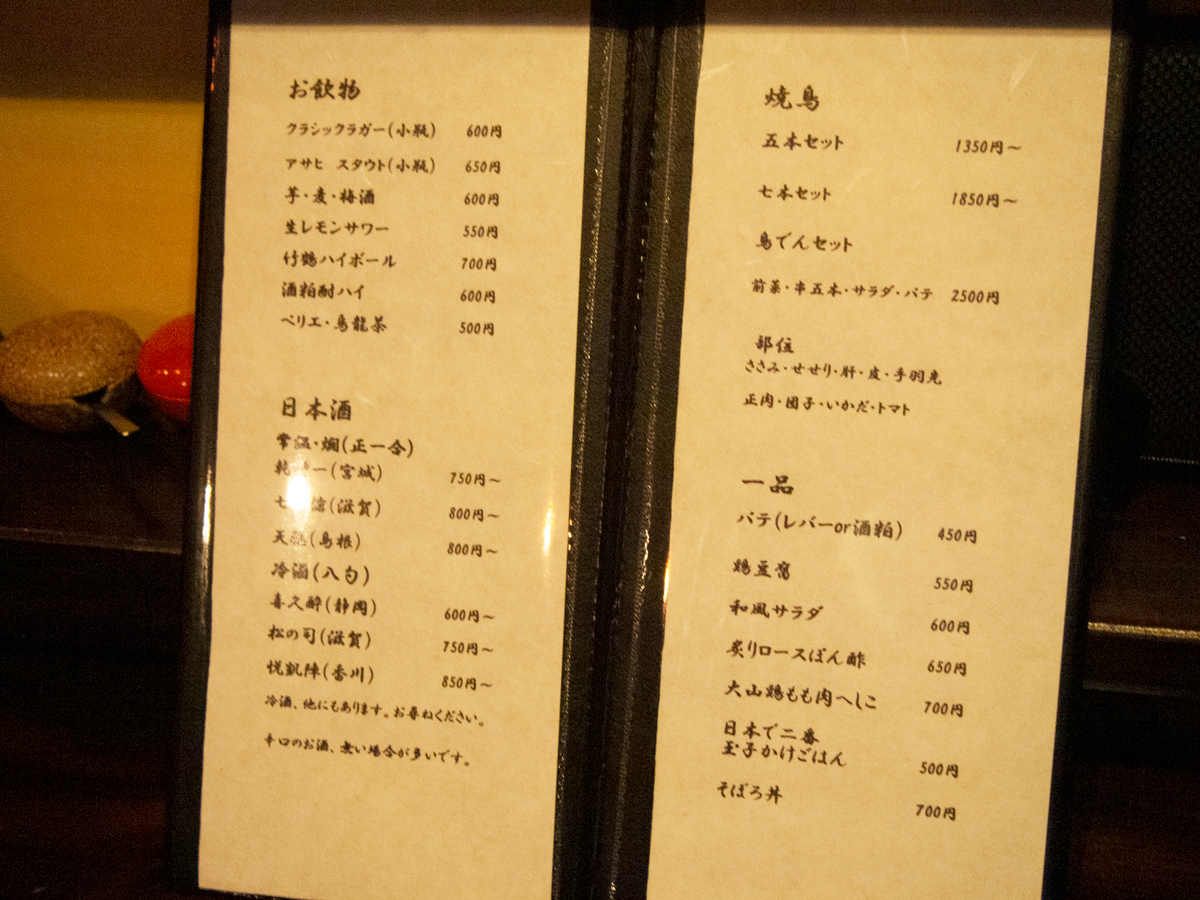 お飲物
クラシックラガー(小瓶) 600円
アサヒ スタウト(小瓶) 650円
芋・麦・梅酒 600円
生レモンサワー 550円
竹鶴ハイボール 700円
酒粕酎ハイ 600円
ペリエ・烏龍茶 500円
日本酒
常温・燗(正一合)
(宮城) 750円〜
(滋賀) 800円〜
(島根) 800円〜
冷酒(八勺)
喜久酔(静岡) 600円〜
松の司(滋賀) 750円〜
悦凱陣(香川) 850円〜
冷酒、他にもあります。お尋ねください。
辛口のお酒、無い場合が多いです。
焼鳥
五本セット 1350円〜
七本セット 1850円〜
鳥でんセット
前菜・串五本・サラダ・パテ 2500円
部位
ささみ・せせり・肝・皮・手羽先
正肉・団子・いかだ・トマト
一品
パテ(レバーor酒粕) 450円
鶏豆腐 550円
和風サラダ 600円
炙りロースぽん酢 650円
大山鶏もも肉へしこ 700円
日本で二番
玉子かけごはん 500円
そぼろ丼 700円